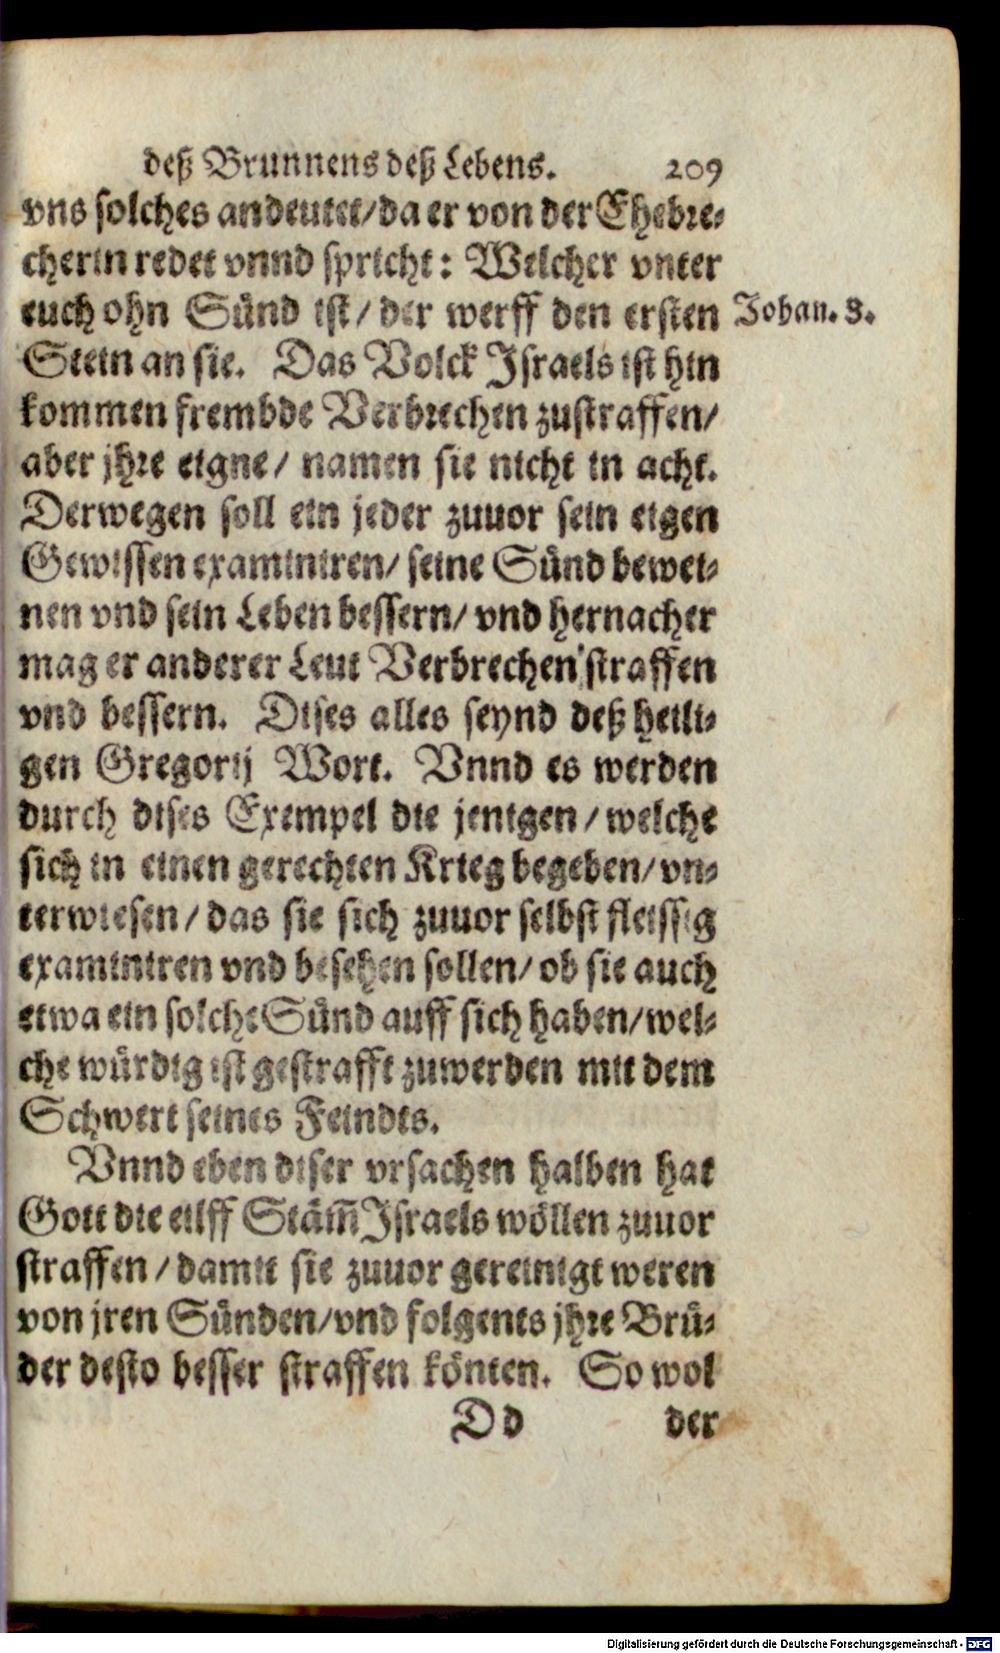 deß Brunnens deß Lebens. 209
vns solches andeutet/da er von der Ehebre-
cherin redet vnnd spricht: Welcher vnter
euch ohn Sünd ist/der werff den ersten Johan. 8.
Stein an sie. Das Volck Israels ist hin
kommen frembde Verbrechen zustraffen/
aber jhre eigne/ namen sie nicht in acht.
Derwegen soll ein jeder zuuor sein eigen
Gewissen examiniren/ seine Sünd bewei-
nen vnd sein Leben bessern/ vnd hernacher
mag er anderer Leut Verbrechen straffen
vnd bessern. Dises alles seynd deß heili-
gen Gregorij Wort. Vnnd es werden
durch dises Exempel die jenigen/welche
sich in einen gerechten Krieg begeben/vn-
terwiesen/das sie sich zuuor selbst fleissig
examiniren vnd besehen sollen/ob sie auch
etwa ein solche Sünd auff sich haben/wel-
che würdig ist gestrafft zuwerden mit dem
Schwert seines Feindts.
Vnnd eben diser vrsachen halben hat
Gott die eilff Stäm̄ Israels wöllen zuuor
straffen/damit sie zuuor gereinigt weren
von jren Sünden/vnd folgents jhre Brü-
der desto besser straffen könten. So wol
Dd der
Digitalisierung gefördert durch die Deutsche Forschungsgemeinschaft - DFG